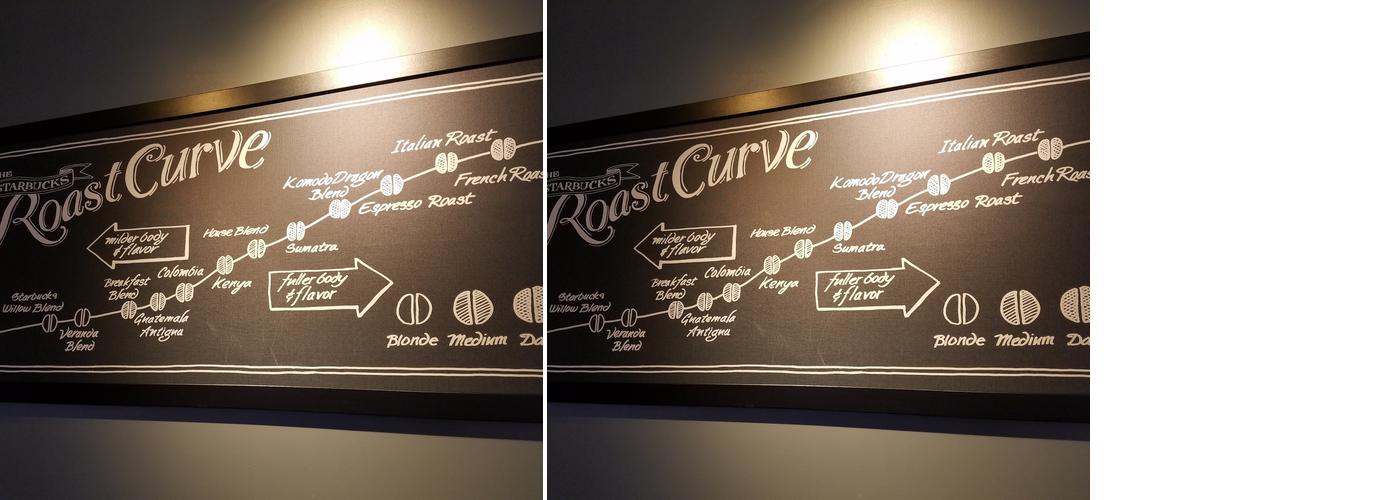 THE
STARBUCKS
Roast Curve
Italian Roast
French Roas
Komodo Dragon
Blend
Espresso Roast
milder body
& flavor
House Blend
Sumatra
Breakfast
Blend
Colombia
Kenya
fuller body
& flavor
Starbucks
Willow Blend
Veranda
Blend
Guatemala
Antigua
Blonde
Medium
Da
THE
STARBUCKS
Roast Curve
Italian Roast
French Roas
Komodo Dragon
Blend
Espresso Roast
milder body
& flavor
House Blend
Sumatra
Breakfast
Blend
Colombia
Kenya
fuller body
& flavor
Starbucks
Willow Blend
Veranda
Blend
Guatemala
Antigua
Blonde
Medium
Da